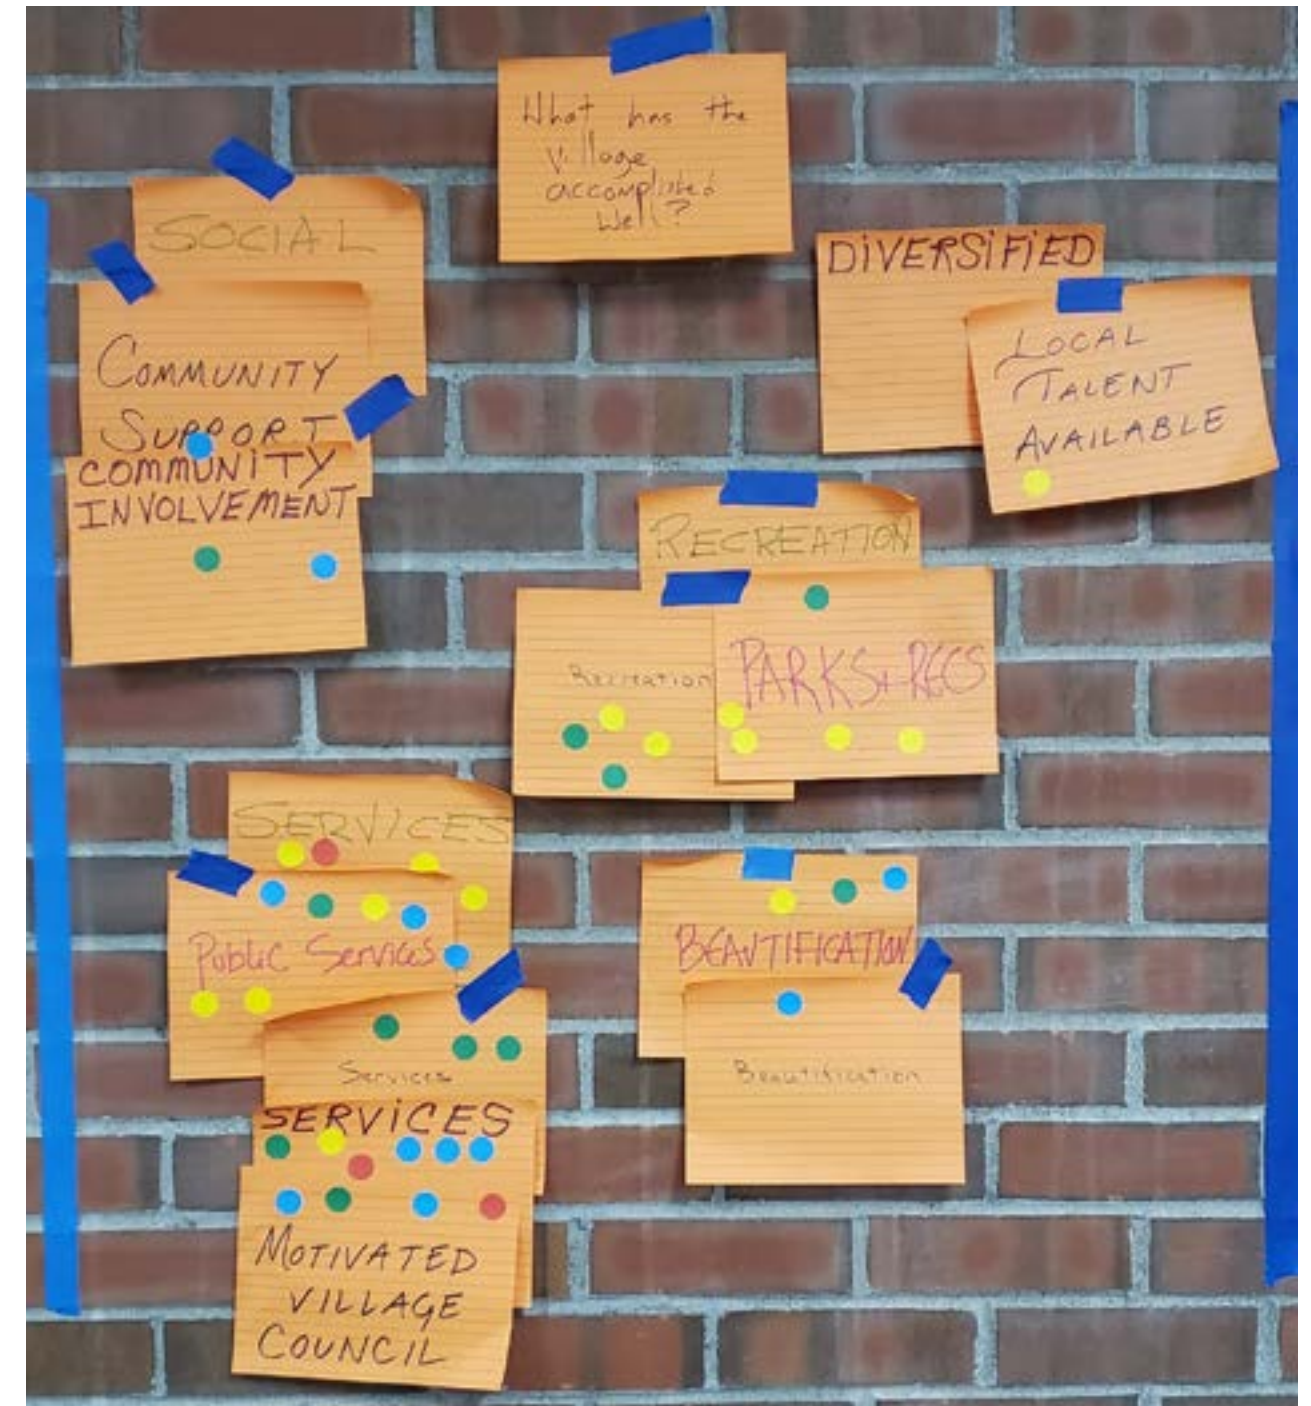 What has the
village
accomplished
well?
SOCIAL
COMMUNITY
SUPPORT
COMMUNITY
INVOLVEMENT
DIVERSIFIED
LOCAL
TALENT
AVAILABLE
RECREATION
Recreation
PARKS + RECS
SERVICES
Public Services
Services
SERVICES
MOTIVATED
VILLAGE
COUNCIL
BEAUTIFICATION
Beautification